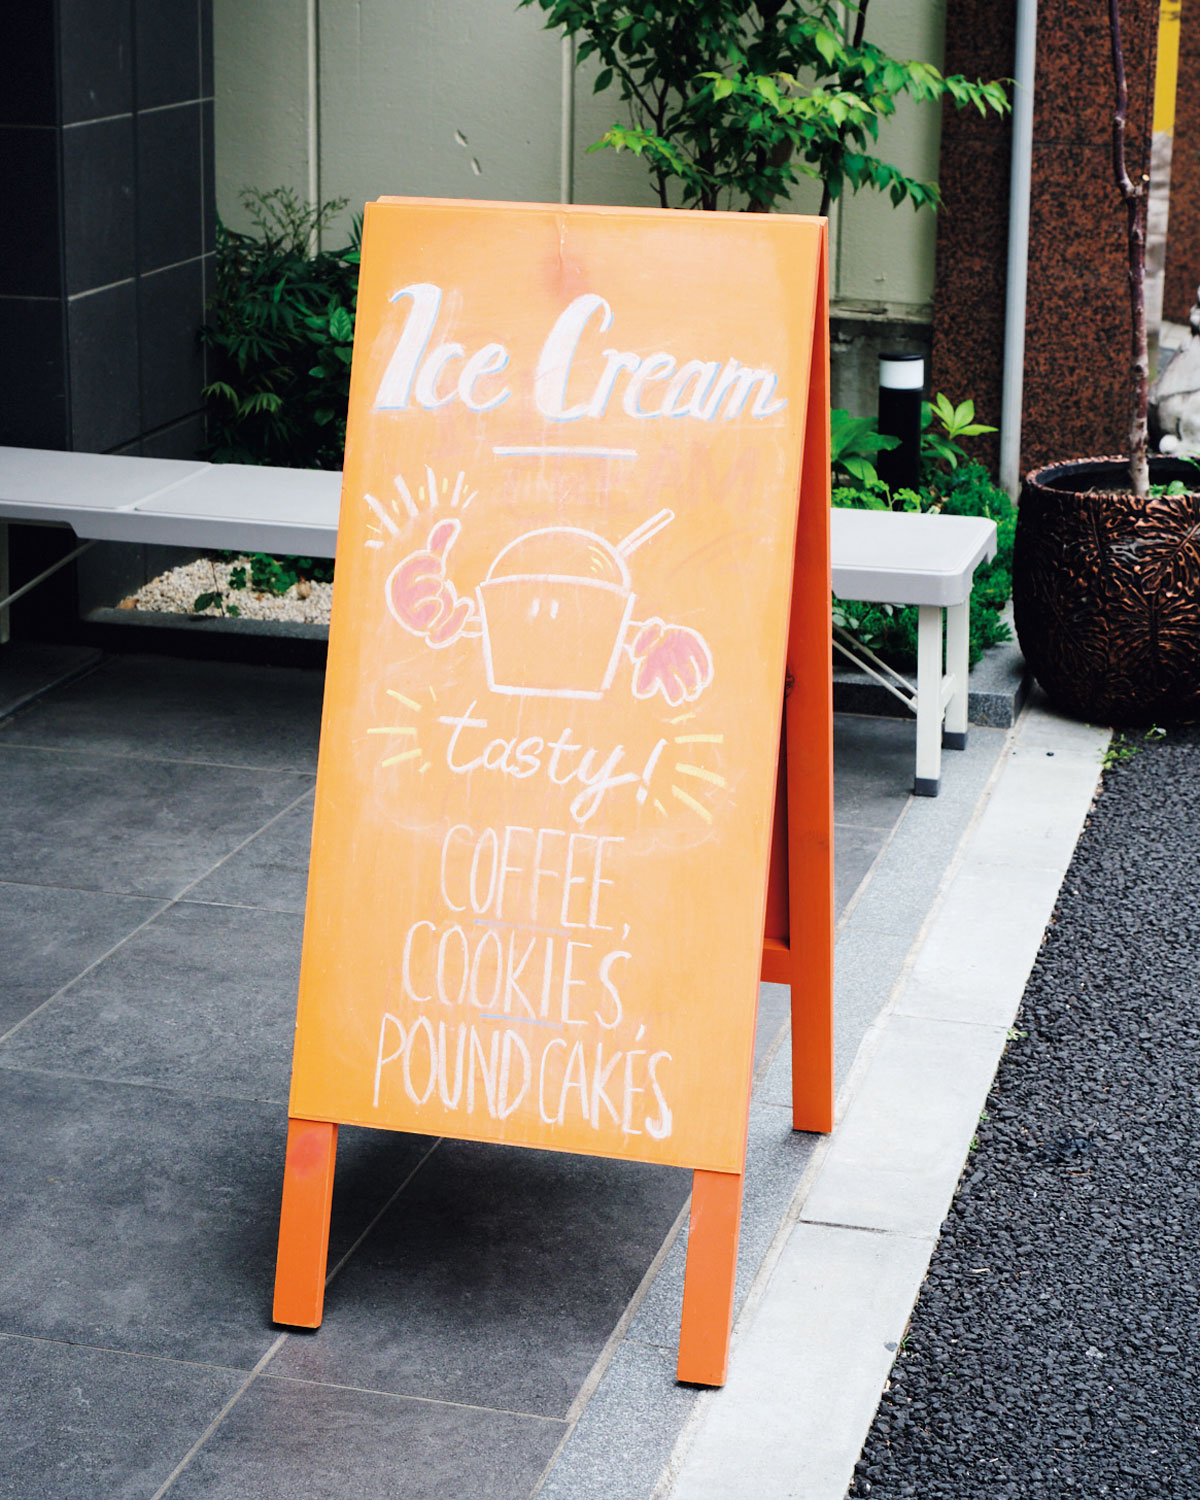 Ice Cream
tasty!
COFFEE,
COOKIES,
POUND CAKES